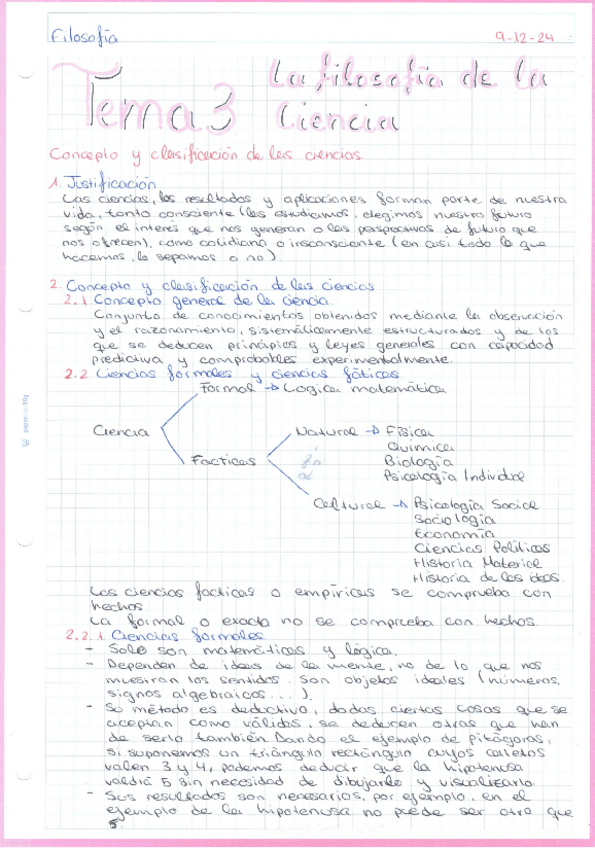 Filosofía 9-12-24
Tema 3 La filosofía de la
Ciencia
Concepto y clasificación de las ciencias
1. Justificación
Las ciencias, los resultados y aplicaciones forman parte de nuestra
vida, tanto consciente (las estudiamos, elegimos nuestro futuro
según el interés que nos generan o las perspectivas de futuro que
nos ofrecen), como cotidiana o insconsciente (en casi todo lo que
hacemos, lo sepamos o no).
2. Concepto y clasificación de las ciencias
2.1 Concepto general de la ciencia.
Conjunto de conocimientos obtenidos mediante la observación
y el razonamiento, sistemáticamente estructurados y de los
que se deducen principios y leyes generales con capacidad
predictiva y comprobables experimentalmente.
2.2 Ciencias formales y ciencias fácticas
Formal → Logica matemática
Ciencia
Natural → Física
Química
Facticas
Biología
Psicología Individual
Cultural → Psicología Social
Sociología
Economía
Ciencias Políticas
Historia Material
Historia de las ideas.
Las ciencias facticas o empíricas se comprueba con
hechos
La formal o exacta no se comprueba con hechos.
2.2.1. Ciencias formales
- Solo son matemáticas y lógica.
- Dependen de ideas de la mente, no de lo que nos
muestran los sentidos. Son objetos ideales (números,
signos algebraicos...).
- Su método es deductivo, dadas ciertas cosas que se
aceptan como válidas, se deducen otras que han
de serlo también. Dando el ejemplo de pitágoras,
si suponemos un triángulo rectángulo cuyos catetos
valen 3 y 4, podemos deducir que la hipotenusa
valdrá 5 sin necesidad de dibujarlo y visualizarlo.
- Sus resultados son necesarios, por ejemplo, en el
ejemplo de la hipotenusa no puede ser otro que
5.